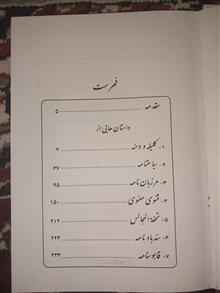 فهرست
مقدمه ۵
داستان هایی از
۱- کلیله و دمنه ۷
۲- سیاستنامه ۶۷
۳- مرزبان نامه ۹۵
۴- مثنوی معنوی ۱۵۰
۵- تحفة المجالس ۲۱۲
۶- سندباد نامه ۲۲۴
۷- قابوسنامه ۲۴۳